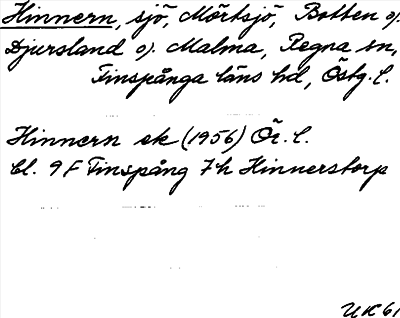 Hinnern, sjö, Mörtsjö, Botten o.
Djursland o. Malma, Regna sn,
Finspånga läns hd, Östg. l.
Hinnern ek (1956) Ög. l.
bl. 9 F Finspång 7 h Hinnerstorp
UK 61